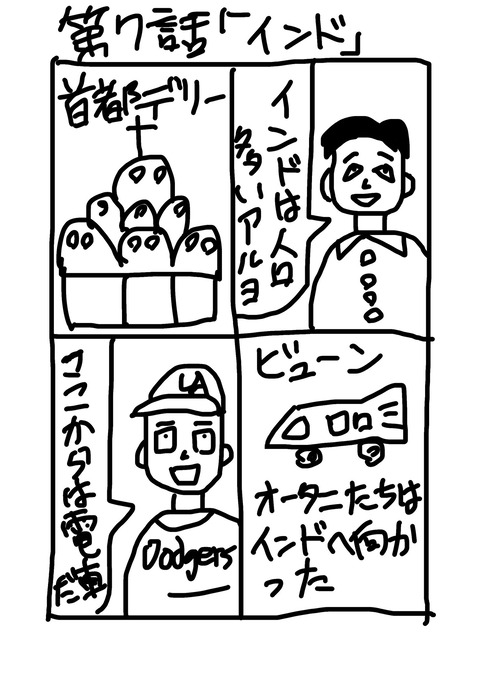 第7話「インド」
首都デリー
インドは人口
多いアルヨ
ここからは電車
だ
LA
Dodgers
ビューン
オータニたちは
インドへ向か
った